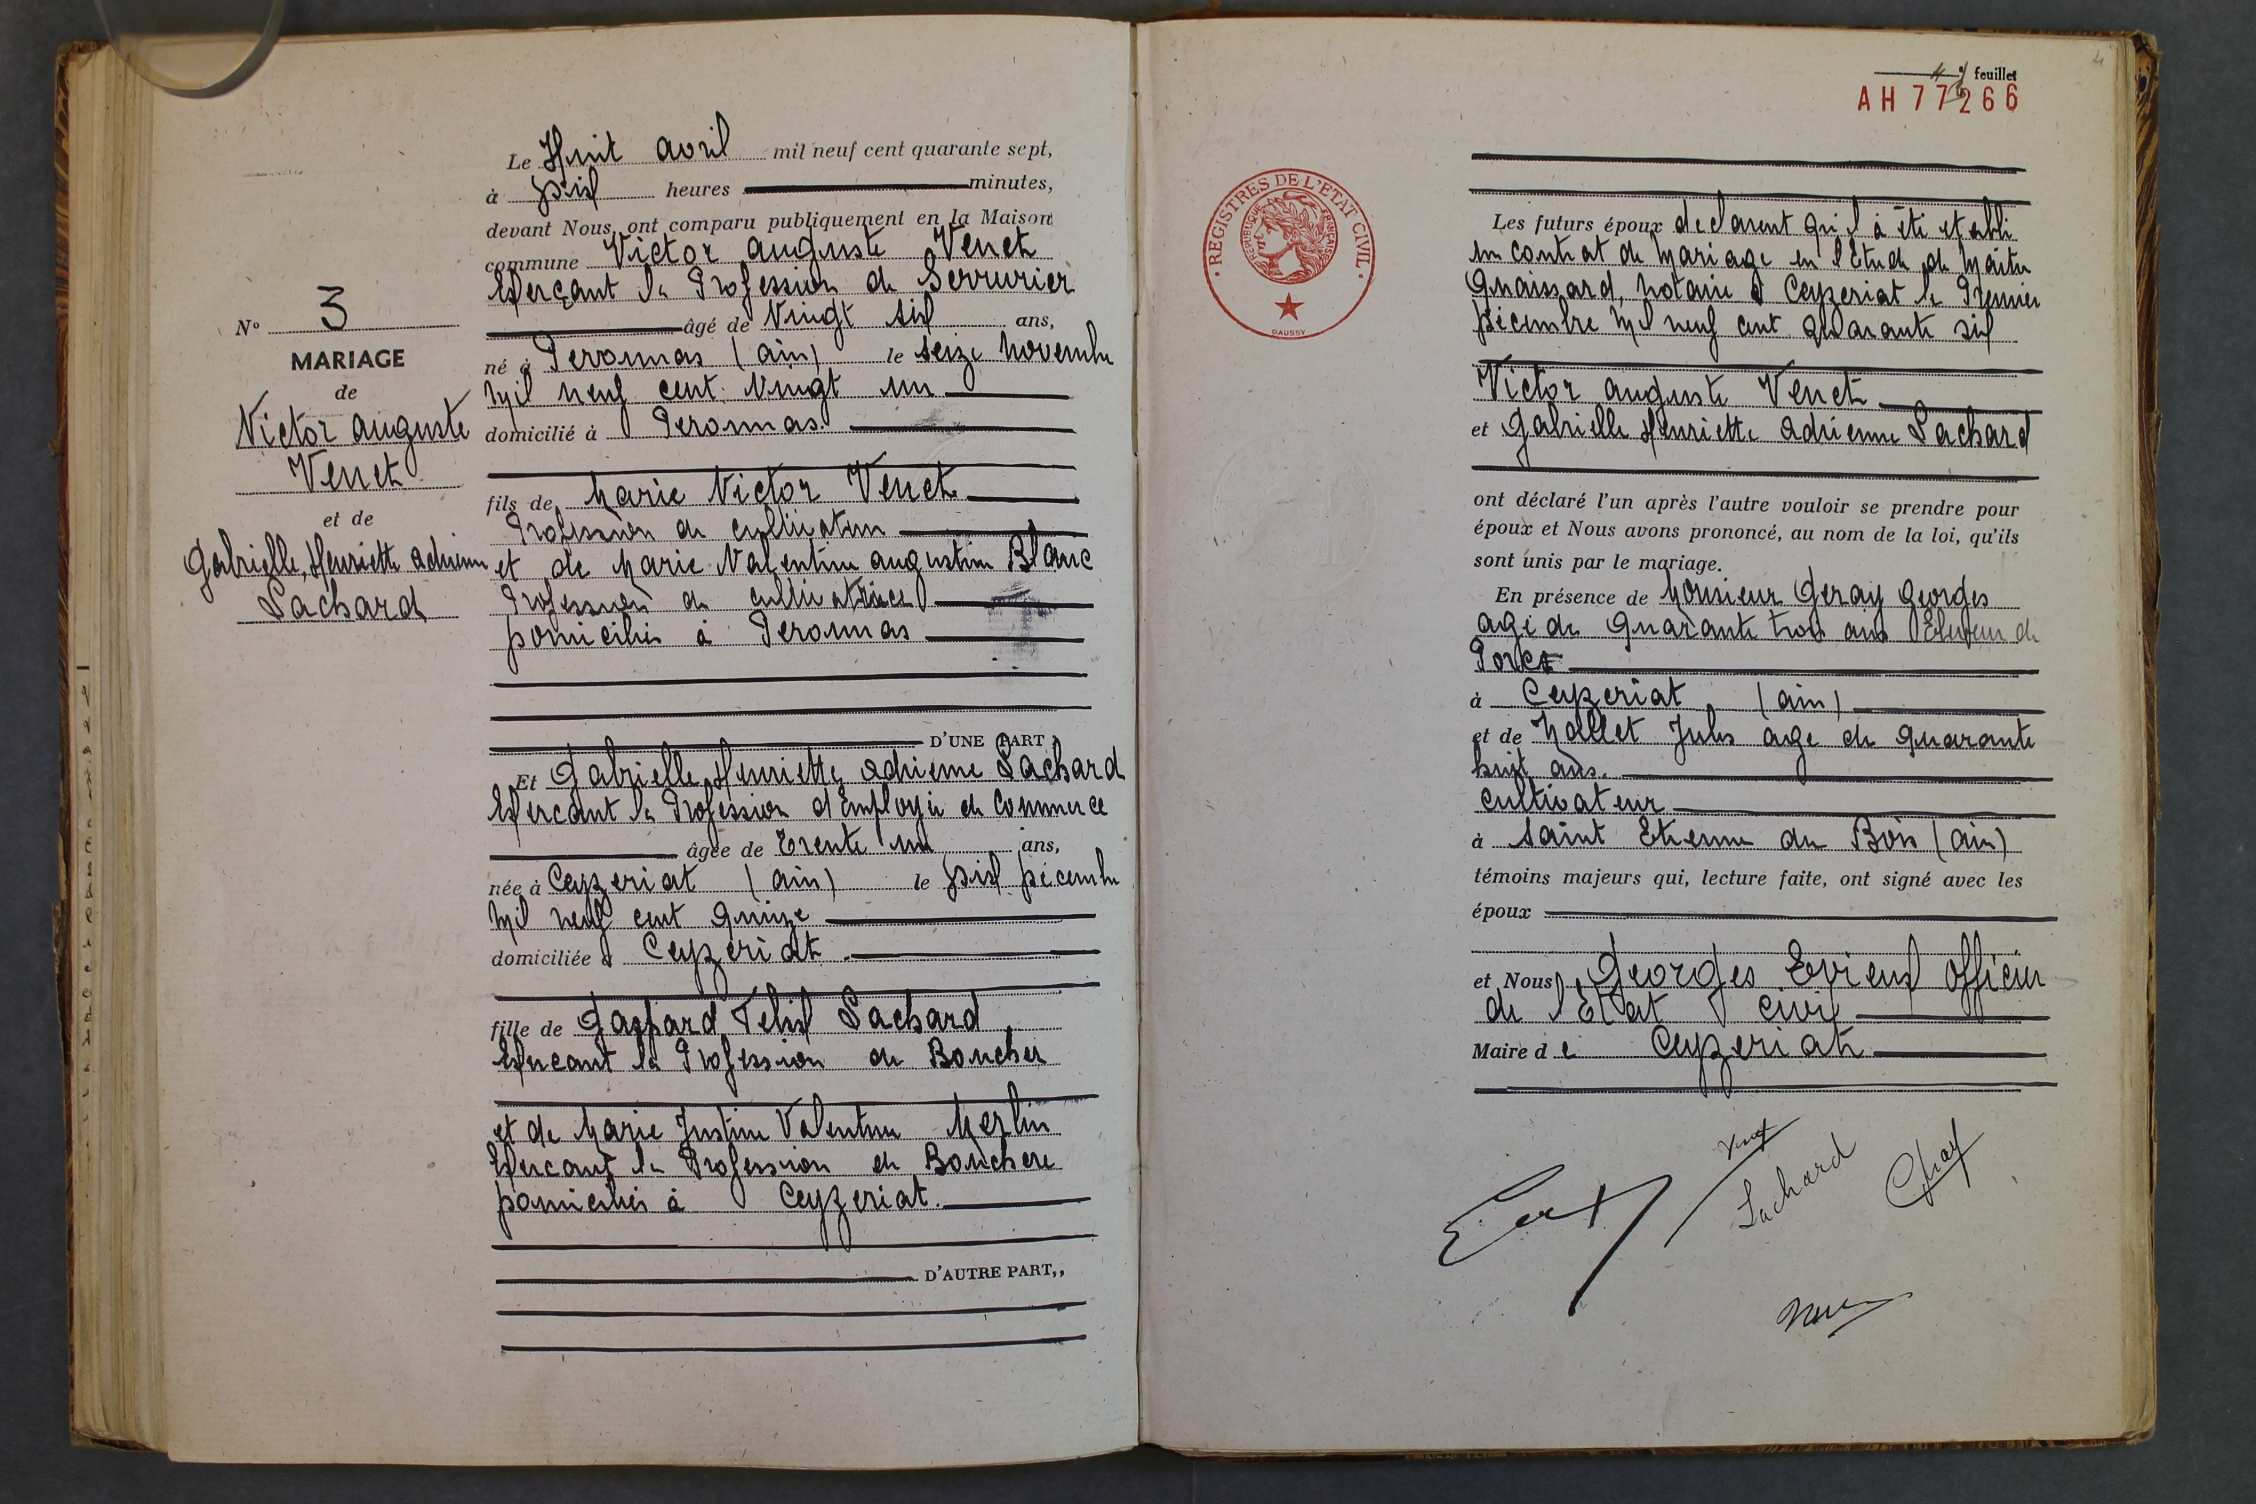 Le Huit avril mil neuf cent quarante sept,
à Dix heures minutes,
devant Nous, ont comparu publiquement en la Maison
commune Victor auguste Venet
Exerçant la Profession de Serrurier
âgé de Vingt six ans,
né à Peronnas (ain) le seize novembre
Mil neuf cent Vingt un
domicilié à Peronnas.
fils de Marie Victor Venet
Profession de cultivateur
et de Marie Valentine augustine Blanc
Profession de cultivatrice
Domiciliés à Peronnas
D'UNE PART
Et Gabrielle, Henriette adrienne Pachard
Exercant la Profession d'Employée de Commerce
âgée de Trente un ans,
née à Ceyzeriat (ain) le Dix Décembre
Mil neuf cent quinze
domiciliée à Ceyzeriat.
fille de Gaspard Felix Pachard
Exercant la Profession de Boucher
et de Marie Justine Valentine Merlin
Exercant la Profession de Bouchere
Domiciliés à Ceyzeriat.
D'AUTRE PART,,
N° 3
MARIAGE
de
Victor auguste
Venet
et de
Gabrielle, Henriette adrienne
Pachard
4 feuillet
AH 77266
REGISTRES DE L'ETAT CIVIL
REPUBLIQUE FRANÇAISE
DAUSSY
Les futurs époux declarent qu'il à été etabli
un contrat de Mariage en l'Etude de Maitre
Quaissard, notaire à Ceyzeriat le Premier
Décembre Mil neuf cent quarante six
Victor auguste Venet
et Gabrielle Henriette adrienne Pachard
ont déclaré l'un après l'autre vouloir se prendre pour
époux et Nous avons prononcé, au nom de la loi, qu'ils
sont unis par le mariage.
En présence de Monsieur Geray Georges
agé de Quarante trois ans Eleveur de
Porcs
à Ceyzeriat (ain)
et de Mallet Jules age de quarante
huit ans.
cultivateur
à Saint Etienne du Bois (ain)
témoins majeurs qui, lecture faite, ont signé avec les
époux
et Nous Georges Evieux officier
de l'Etat civil
Maire de Ceyzeriat
Venet
Pachard